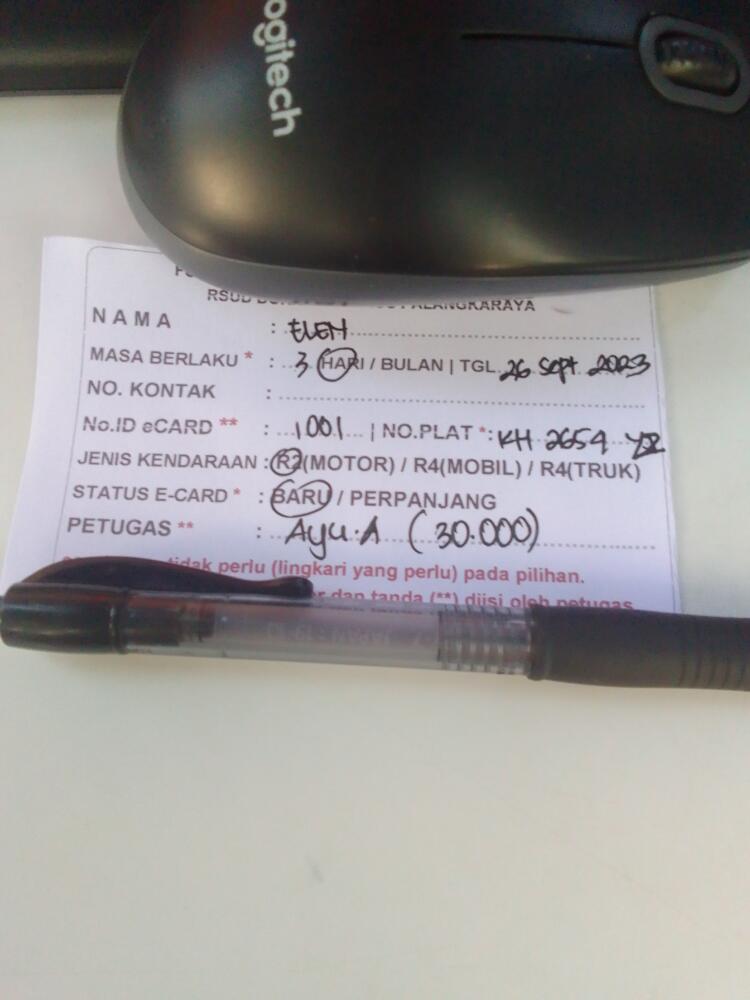 logitech
RSUD PALANGKARAYA
NAMA : ELEN
MASA BERLAKU * : 3 HARI / BULAN | TGL. 26 Sept 2023
NO. KONTAK :
No.ID eCARD ** : 1001 | NO.PLAT *: KH 2654 YZ
JENIS KENDARAAN : R2(MOTOR) / R4(MOBIL) / R4(TRUK)
STATUS E-CARD * : BARU / PERPANJANG
PETUGAS ** : Ayu.A (30.000)
tidak perlu (lingkari yang perlu) pada pilihan.
dan tanda (**) diisi oleh petugas